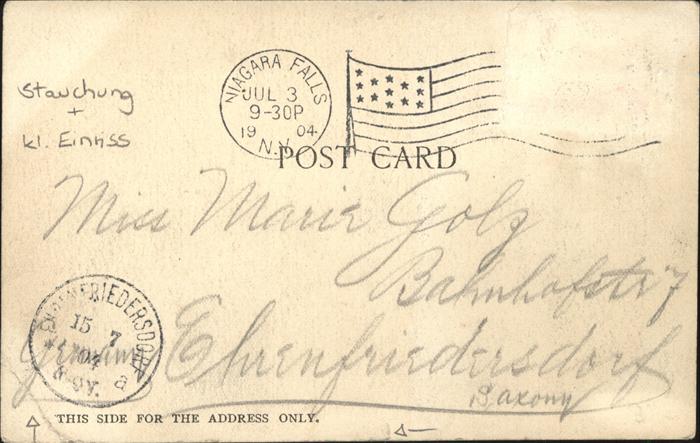 Stauchung
+
kl. Einriss
NIAGARA FALLS
JUL 3
9-30P
19 04
N.Y.
POST CARD
Miss Marie Golz
Bahnhofstr 7
EHRENFRIEDERSDORF
15 7
04
8-9V.
a
Germany Ehrenfriedersdorf
Saxony
THIS SIDE FOR THE ADDRESS ONLY.